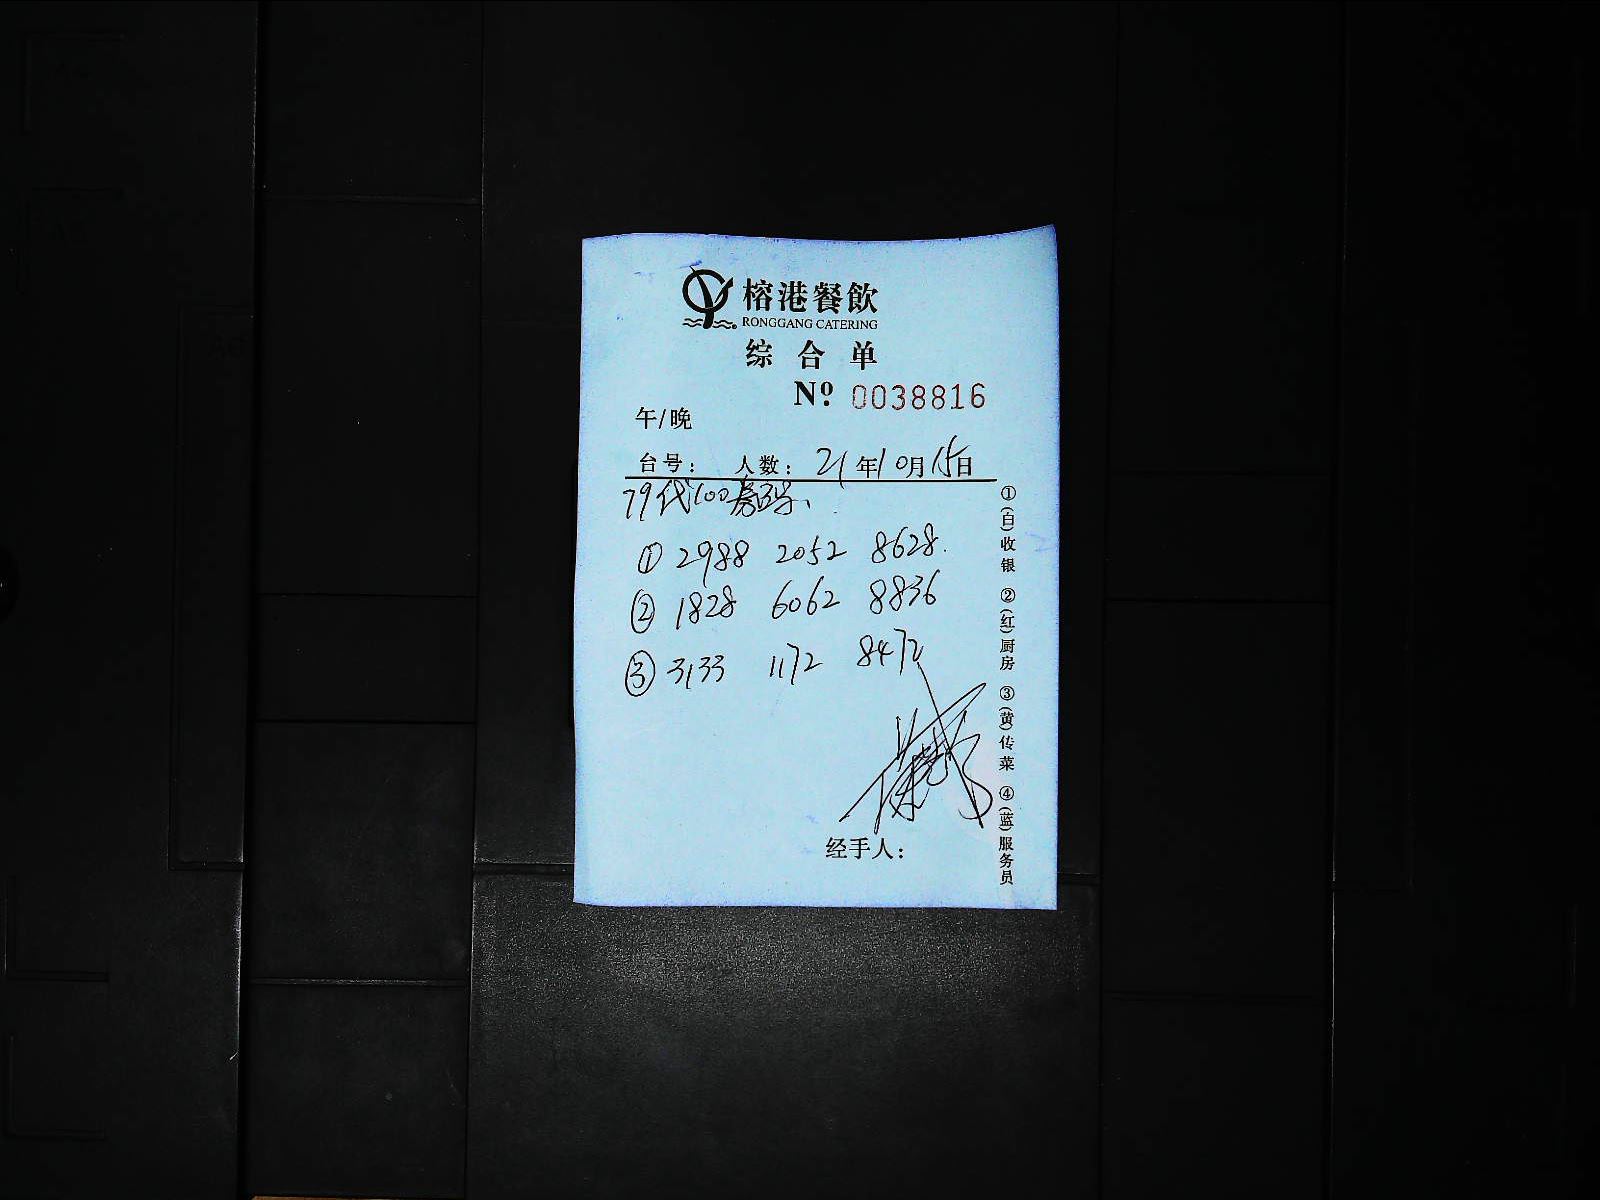 榕港餐飲
RONGGANG CATERING
综合单
Nº 0038816
午/晚
台号： 人数： 21年10月15日
79代100券码、
① 2988 2052 8628.
② 1828 6062 8836
③ 3133 1172 8472
经手人：
①(白)收银 ②(红)厨房 ③(黄)传菜 ④(蓝)服务员